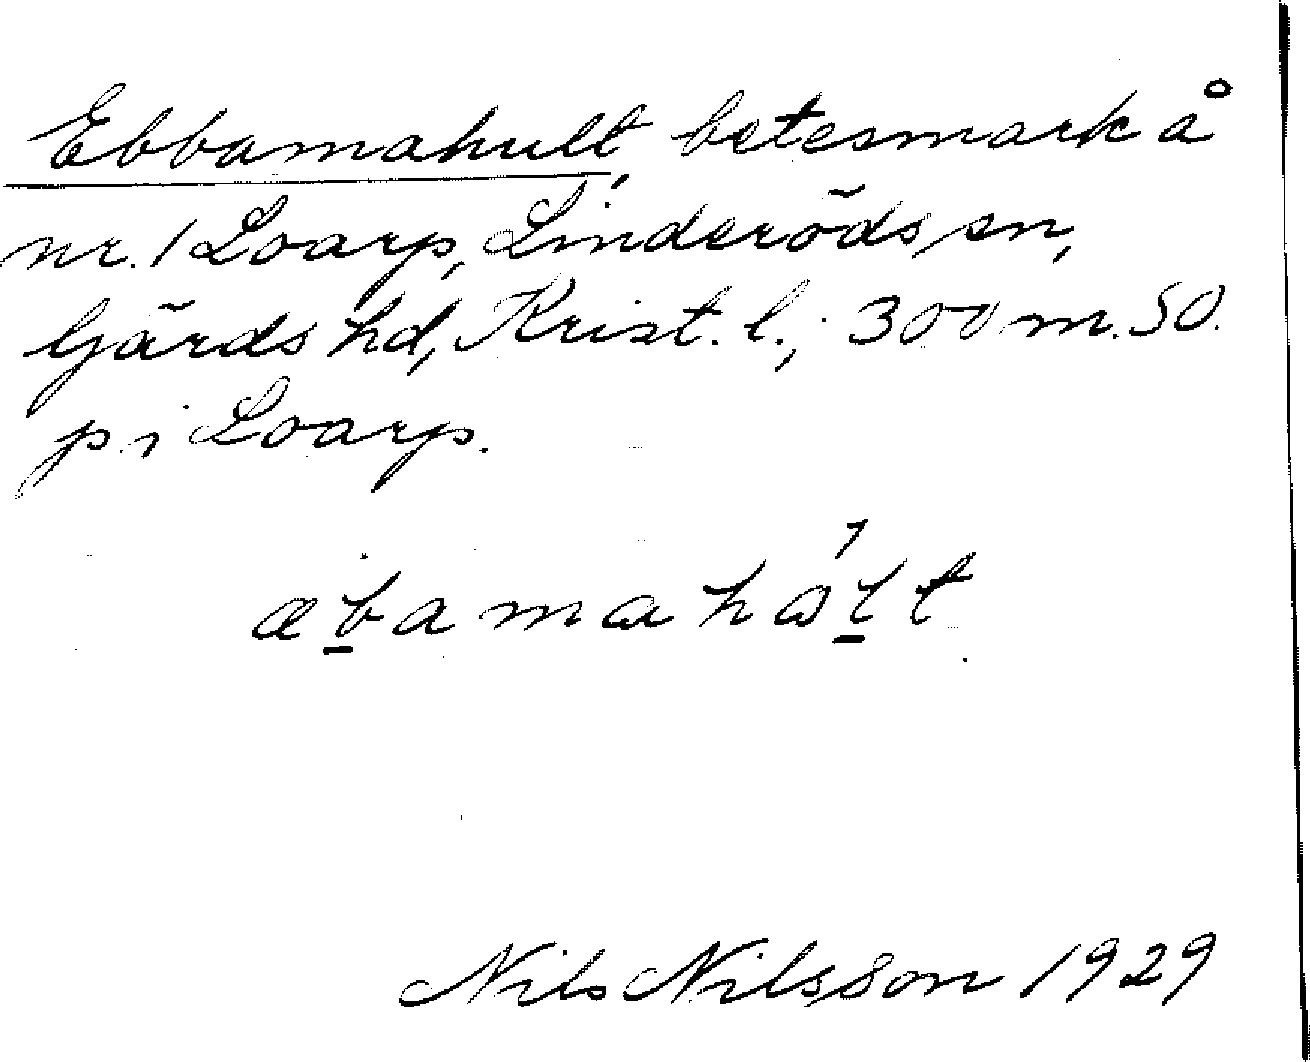 Ebbamahult, betesmark å
nr. 1 Loarp, Linderöds sn,
Gärds hd, Krist. l.; 300 m. SO.
p. i Loarp.
æb̲amahɷĺ̲t
Nils Nilsson 1929